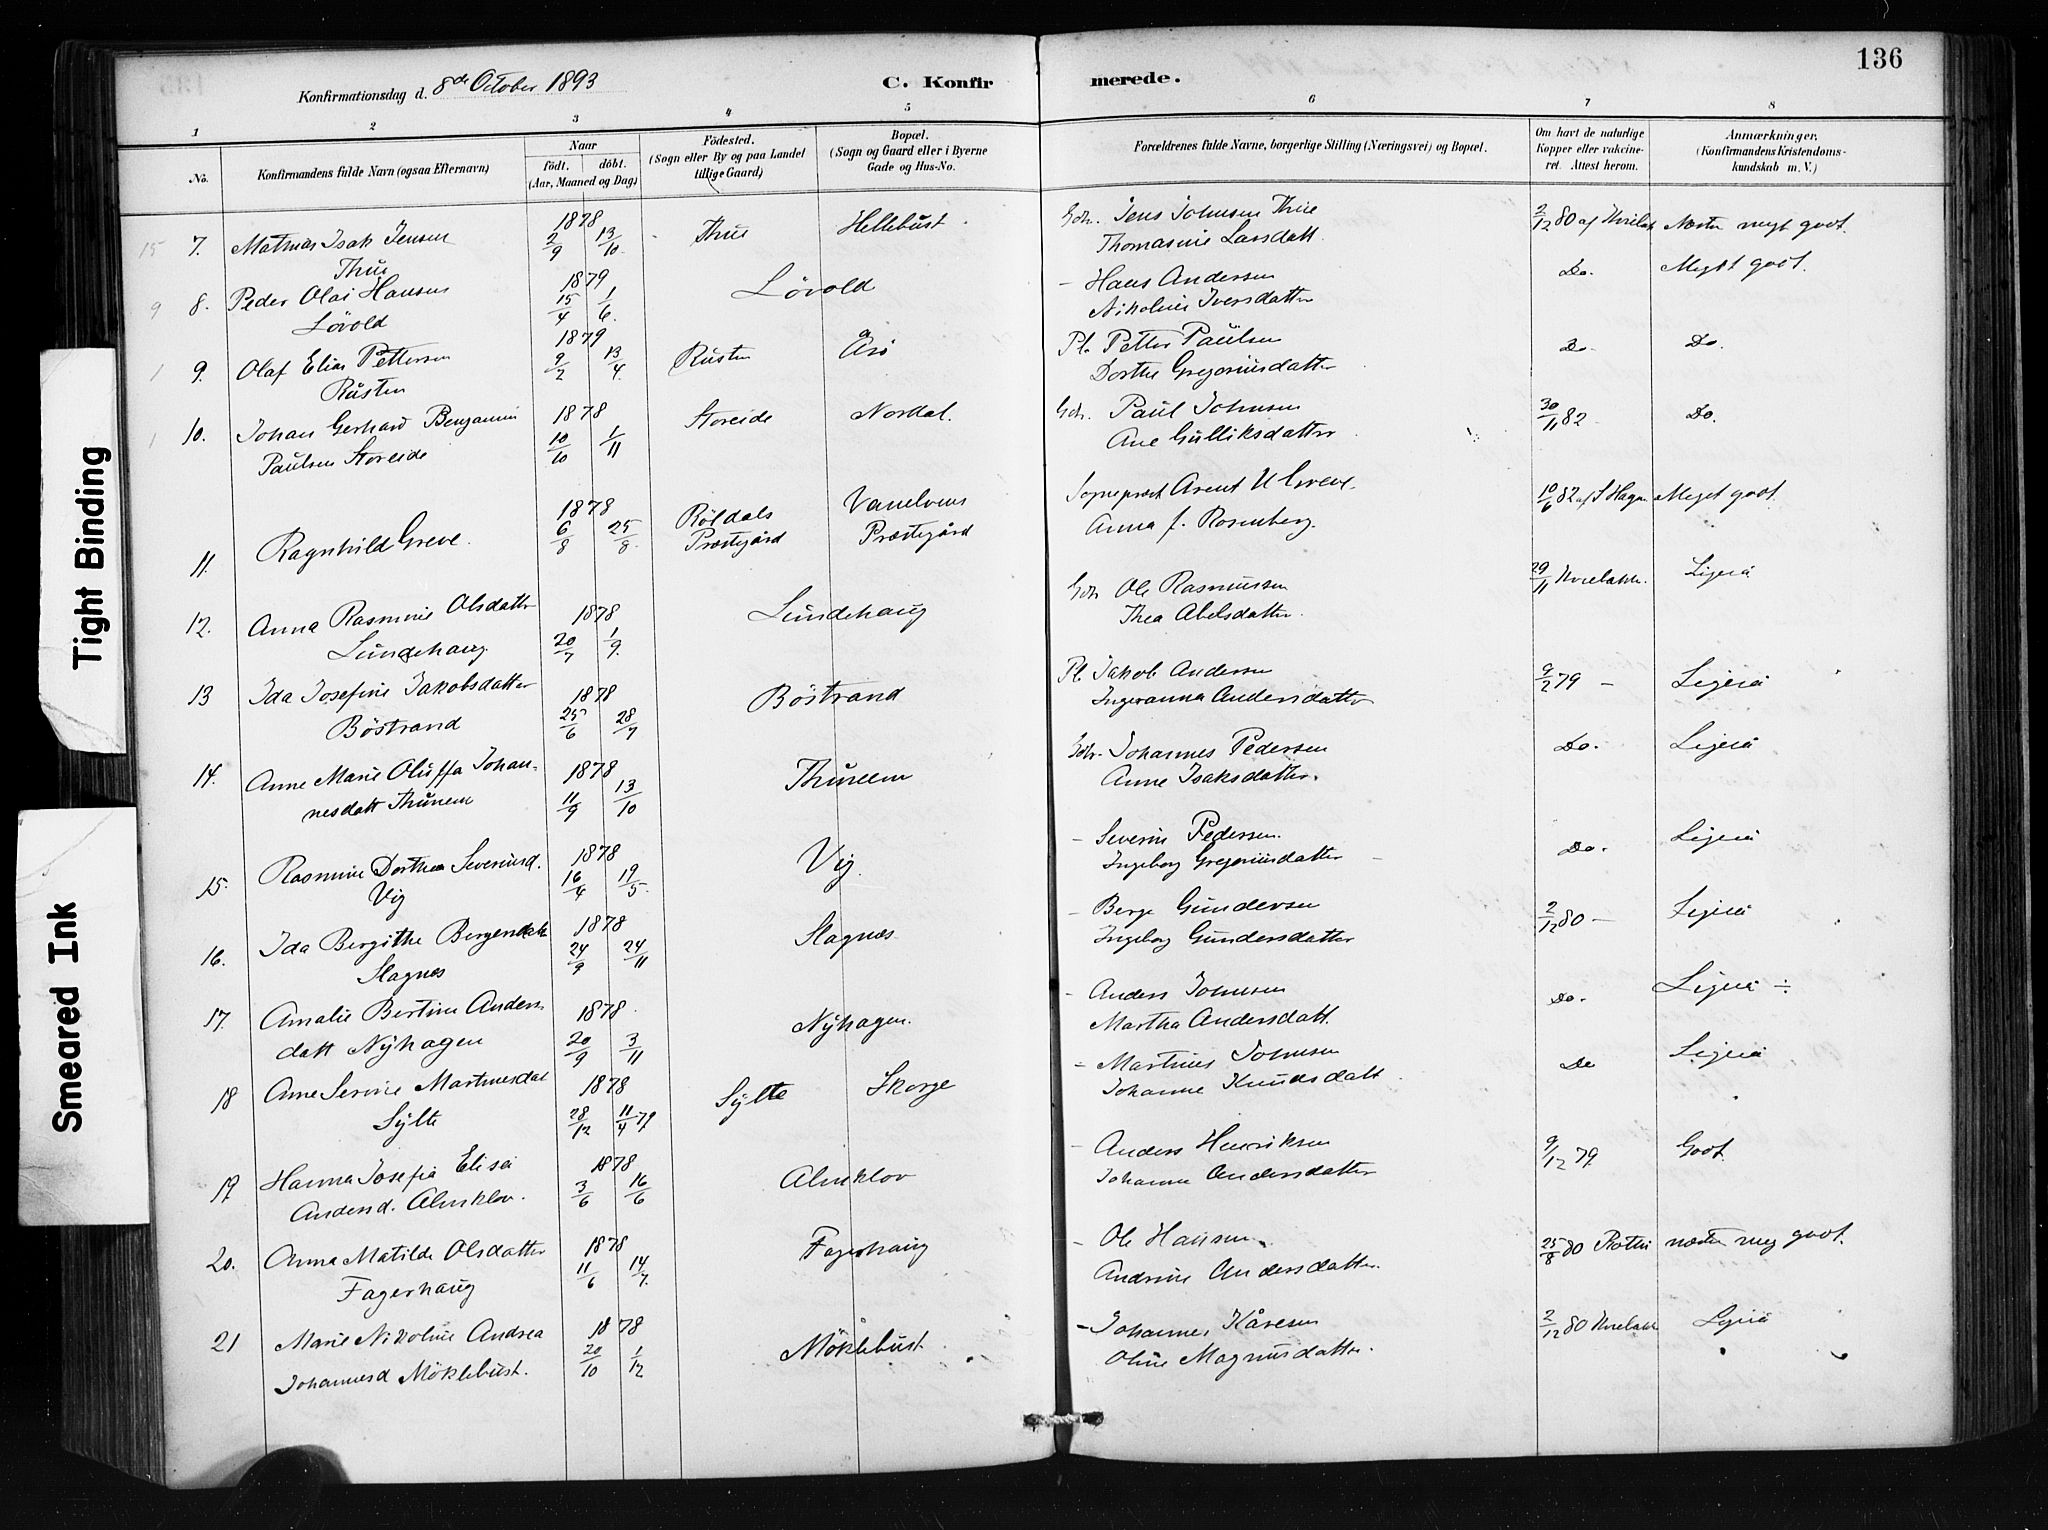 136
Konfirmationsdag d. 8de October 1893
C. Konfir merede.
1 2 3 4 5 6 7 8
No.
Konfirmandens fulde Navn (ogsaa Efternavn)
Naar
födt. döbt.
(Aar, Maaned og Dag)
Födested.
(Sogn eller By og paa Landet
tillige Gaard)
Bopæl.
(Sogn og Gaard eller i Byerne
Gade og Hus-No.
Forældrenes fulde Navne, borgerlige Stilling (Næringsvei) og Bopæl.
Om havt de naturlige
Kopper eller vakcine-
ret. Attest herom.
Anmærkninger.
(Konfirmandens Kristendoms-
kundskab m. V.)
15 7. Mathias Isak Jensen Thue 1878 2/9 13/10 Thue Hellebust Gdr. Jens Johnsen Thue
Thomasine Larsdatt. 2/12 80 af Hvielak Næsten meget godt.
9 8. Peder Olai Hansen Lövold 1879 15/4 1/6. Lövold - Hans Andersen
Nikoline Iversdatter Do. Meget godt.
1 9. Olaf Elias Pettersen Rusten 1879 9/2 13/4. Rusten Årö Pl. Petter Paulsen
Dorthe Gregoriusdatter Do. Do.
1 10. Johan Gerhard Benjamin
Paulsen Storeide 1878 10/10 1/11 Storeide Nordal. Gdr. Paul Johnsen
Ane Gulliksdatter 30/11 82 Do.
11. Ragnhild Greve. 1878 6/8 25/8. Röldals Præstegård Vanelvens Præstegård Sognepræst Arent U Greve.
Anna f. Rosenberg. 10/6 82 af S Hagen Meget godt.
12. Anna Rasmine Olsdatter
Lundehaug. 1878 20/7 1/9. Lundehaug Gdr Ole Rasmussen
Thea Abelsdatter. 29/11 Hvielakk. Ligeså
13 Ida Josefine Jakobsdatter
Böstrand 1878 25/6 28/7 Böstrand Pl. Jakob Andersen
Ingeranna Andersdatter 9/2 79 - Ligeså
14. Anne Marie Oluffa Johan-
nesdatt Thunem 1878 11/9 13/10 Thuneem Gdr. Johannes Pedersen
Anne Isaksdatter. Do. Ligeså
15. Rasmine Dorthea Severinsd.
Vig 1878 16/4 19/5. Vig. - Severin Pedersen.
Ingeborg Gregoriusdatter Do. Ligeså
16. Ida Bergithe Bergesdatt
Slagnes 1878 24/9 24/11 Slagnes - Berge Gundersen
Ingeborg Gundersdatter 2/12 80 - Ligeså
17. Amalie Bertine Anders
datt Nyhagen 1878 20/9 3/11 Nyhagen. - Anders Johnsen
Martha Andersdatt. Do. Ligeså ÷
18 Ane Serine Martinusdat
Sylte 1878 28/12 11/4 79 Sylte Skorge - Martinus Johnsen
Johanne Knudsdatt. Do Ligeså
19 Hanna Josefia Elisei
Andersd. Almklov. 1878 3/6 16/6 Almklov - Anders Henriksen
Johanne Andersdatter 9/12 79 Godt
20. Anna Matilde Olsdatter
Fagerhaug 1878 11/6 14/7. Fagerhaug - Ole Hansen
Andrine Andersdatter. 25/8 80 næsten meg godt.
21 Marie Nikoline Andrea
Johannesd Möklebust. 1878 20/10 1/12 Möklebust - Johannes Kåresen
Oline Magnusdatter. 2/12 80 Hvielakk Ligeså
Tight Binding
Smeared Ink